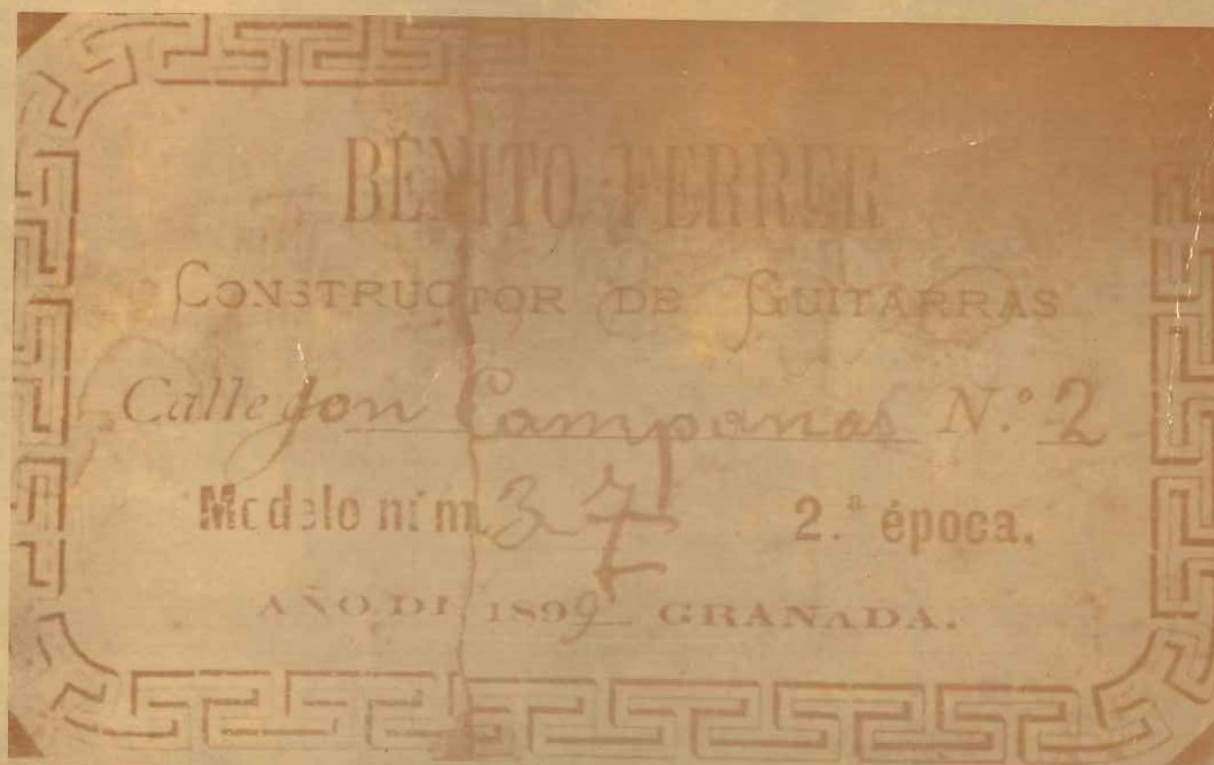 BENITO FERRER
CONSTRUCTOR DE GUITARRAS
Callejon Campanas N.º 2
Modelo núm. 37 2.ª época.
AÑO DE 1899 GRANADA.